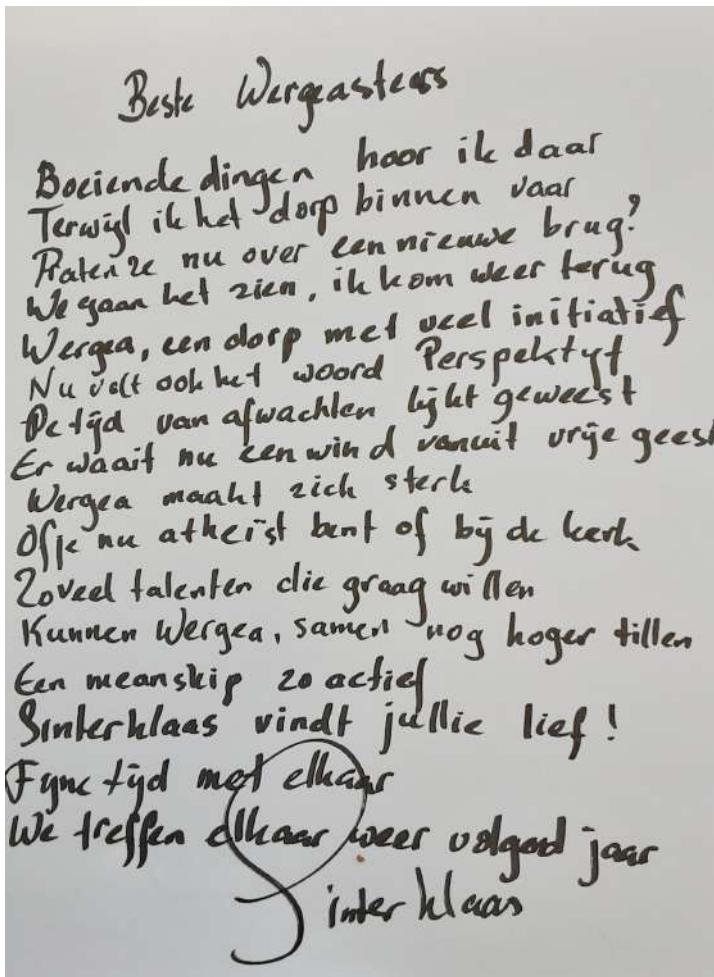 Beste Wergeasters
Boeiende dingen hoor ik daar
Terwijl ik het dorp binnen vaar
Praten ze nu over een nieuwe brug?
We gaan het zien, ik kom weer terug
Wergea, een dorp met veel initiatief
Nu valt ook het woord Perspektyf
De tijd van afwachten lijkt geweest
Er waait nu een wind vanuit vrije geest
Wergea maakt zich sterk
Of je nu atheïst bent of bij de kerk
Zoveel talenten die graag willen
Kunnen Wergea, samen nog hoger tillen
Een meanskip zo actief
Sinterklaas vindt jullie lief!
Fijne tijd met elkaar
We treffen elkaar weer volgend jaar
Sinterklaas